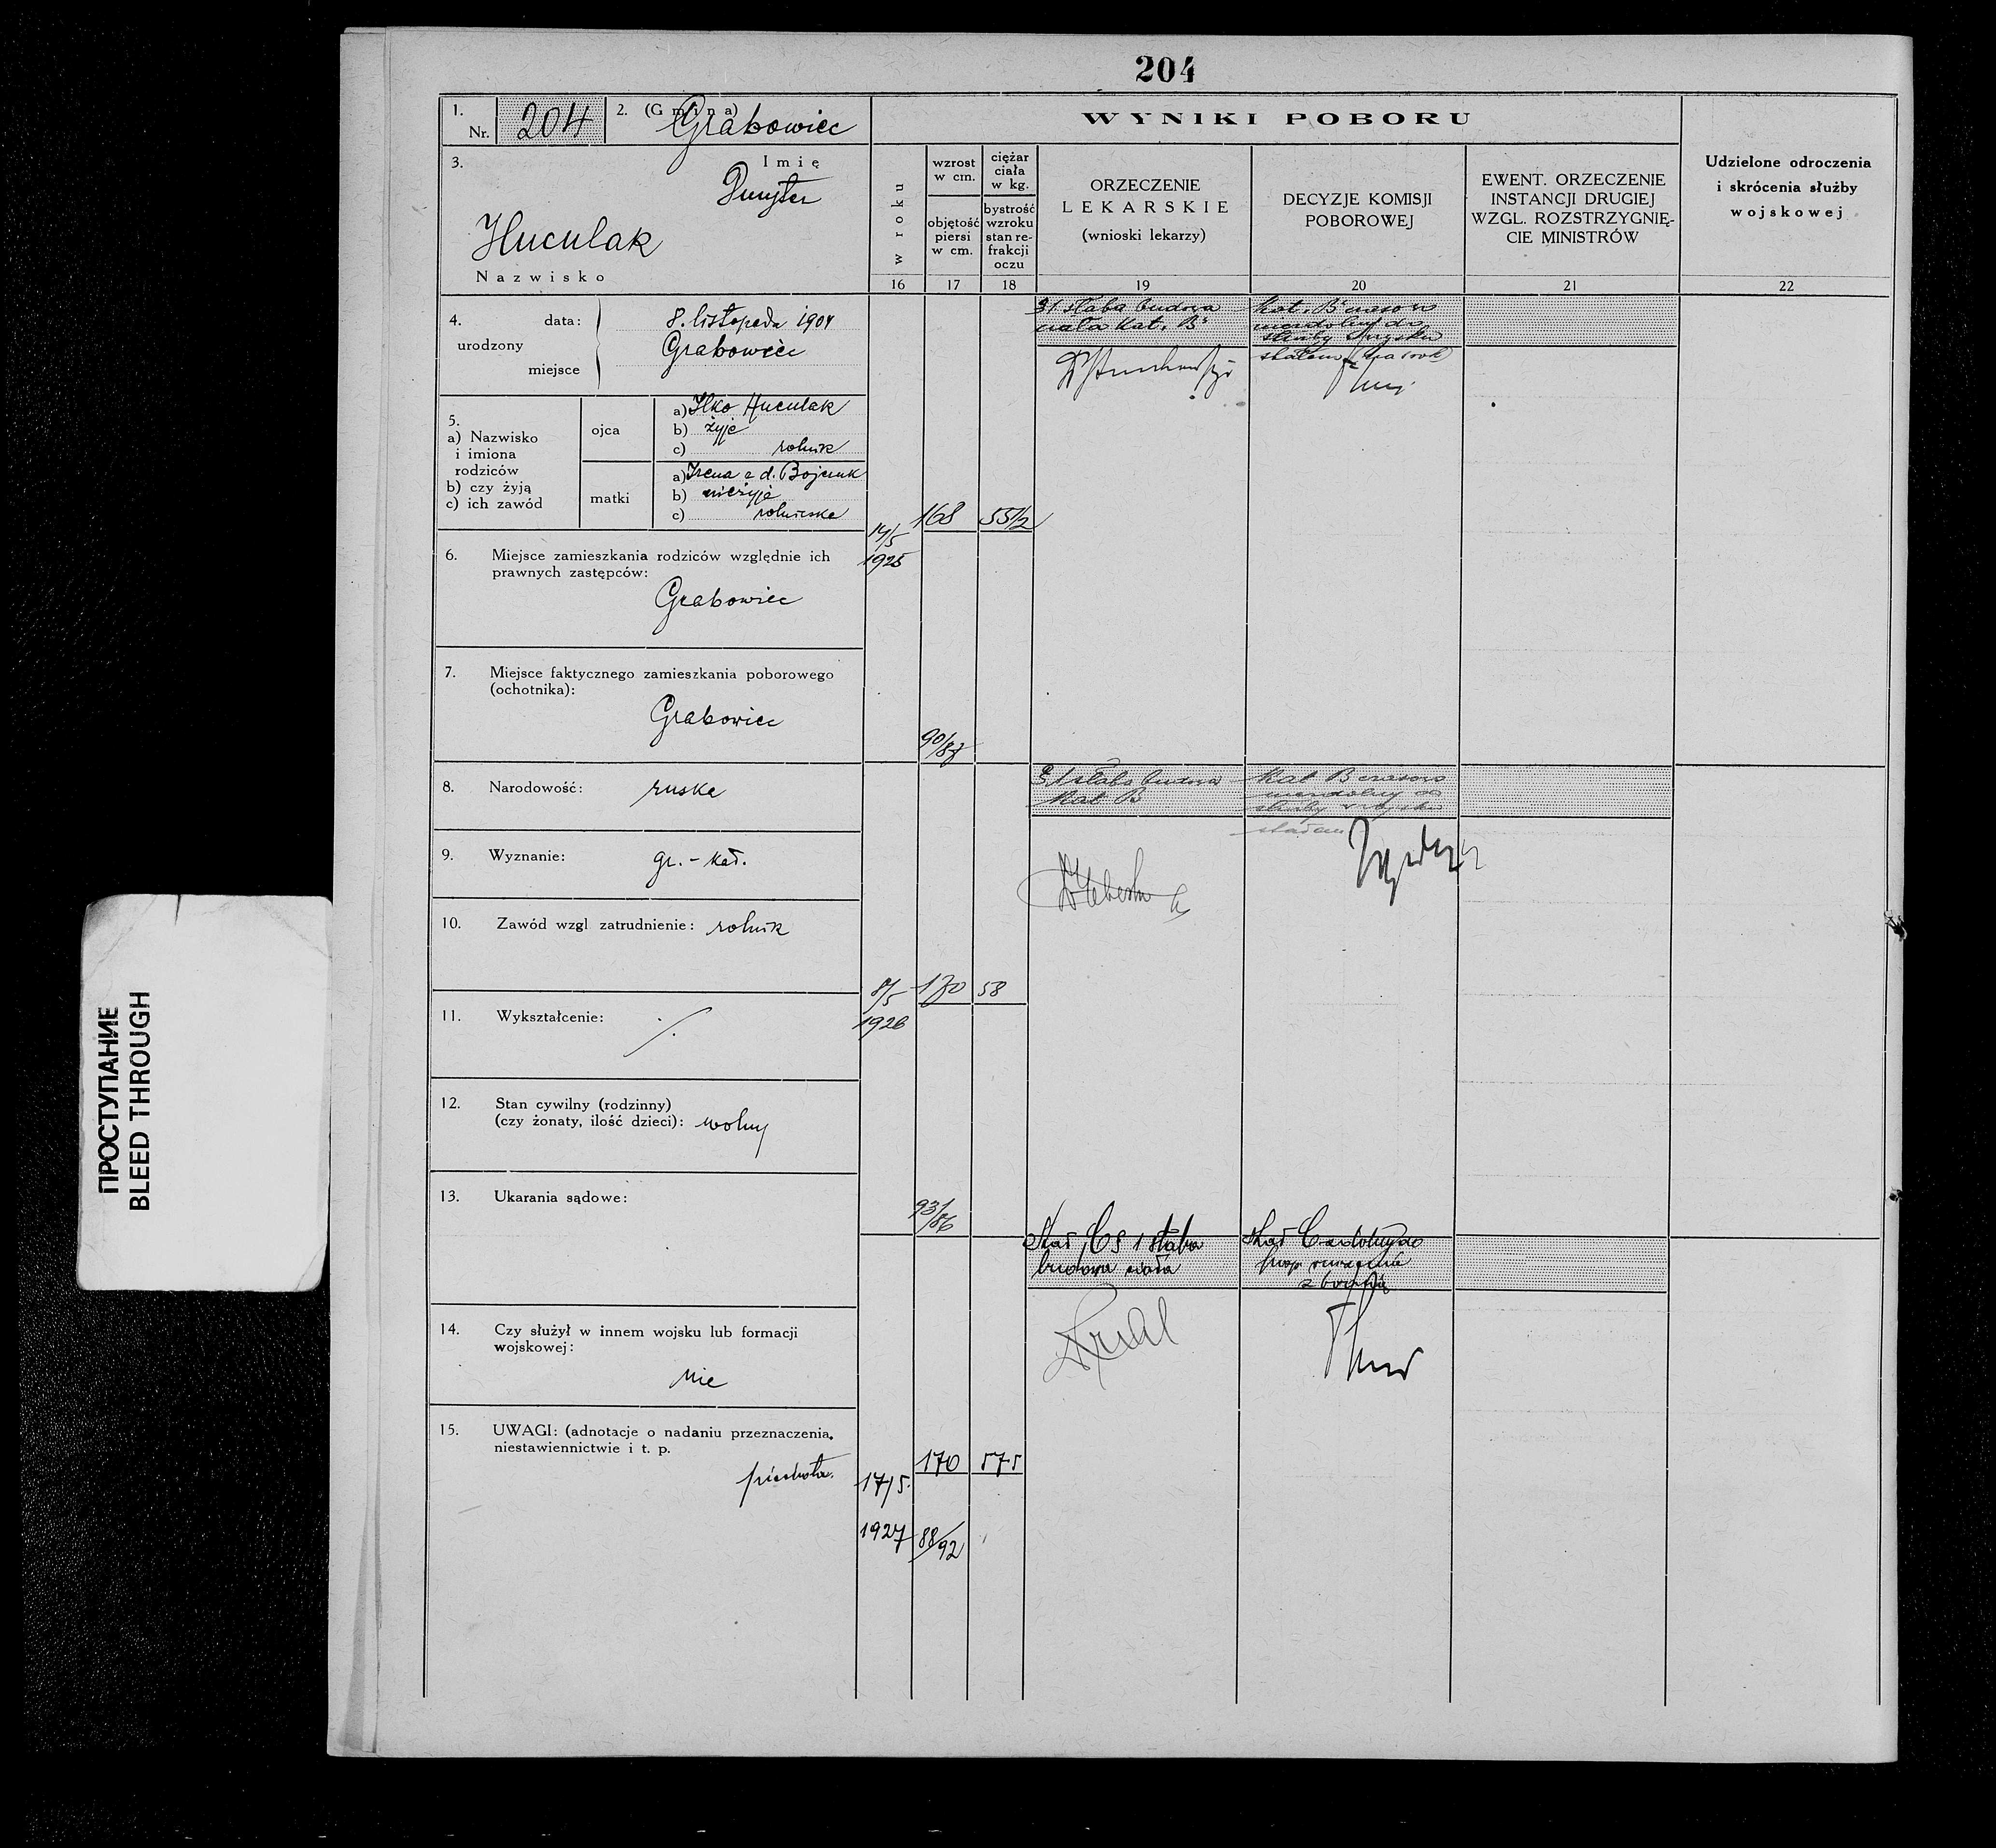 204
1.
Nr. 204
2. (Gmina) Grabowiec
WYNIKI POBORU
3.
Imię
Dmyter
Huculak
Nazwisko
w roku
wzrost w cm.
objętość piersi w cm.
ciężar ciała w kg.
bystrość wzroku stan refrakcji oczu
ORZECZENIE
LEKARSKIE
(wnioski lekarzy)
DECYZJE KOMISJI
POBOROWEJ
EWENT. ORZECZENIE
INSTANCJI DRUGIEJ
WZGL. ROZSTRZYGNIĘ-
CIE MINISTRÓW
Udzielone odroczenia
i skrócenia służby
wojskowej
16 17 18 19 20 21 22
4.
urodzony
data: 8. listopada 1904
miejsce Grabowiec
5.
a) Nazwisko
i imiona
rodziców
b) czy żyją
c) ich zawód
ojca
a) Ilko Huculak
b) żyje
c) rolnik
matki
a) Irena z d. Bojczuk
b) nieżyje
c) rolniczka
6. Miejsce zamieszkania rodziców względnie ich
prawnych zastępców:
Grabowiec
7. Miejsce faktycznego zamieszkania poborowego
(ochotnika):
Grabowiec
8. Narodowość: ruska
9. Wyznanie: gr.-kat.
10. Zawód wzgl zatrudnienie: rolnik
11. Wykształcenie: ·/.
12. Stan cywilny (rodzinny)
(czy żonaty, ilość dzieci): wolny
13. Ukarania sądowe:
14. Czy służył w innem wojsku lub formacji
wojskowej:
nie
15. UWAGI: (adnotacje o nadaniu przeznaczenia,
niestawiennictwie i t. p.
piechota.
14/5
1925
168
55 1/2
90/87
słaba budowa
ciała kat. B
kat. B czasowo
niezdolny do
służby
8/5
1926
170
58
93/86
słaba budowa
Kat B
Kat B czasowo
niezdolny do
służby
17/5.
1927
170
575
88/92
słaba
budowa ciała
z bronią
ПРОСТУПАНИЕ
BLEED THROUGH